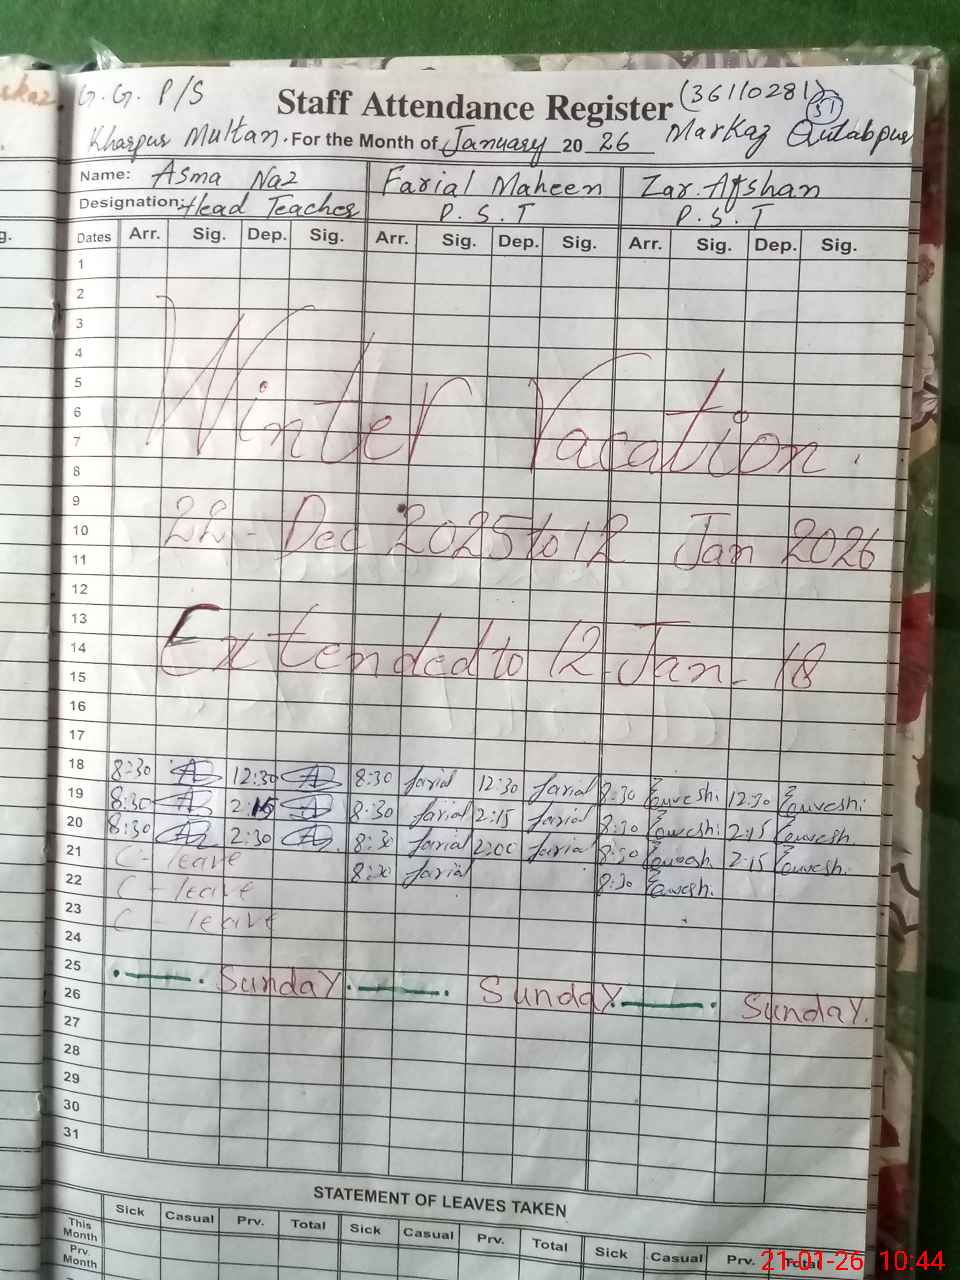 G.G. P/S
Staff Attendance Register (36110281)
31
Multan. For the Month of January 20 26 Markaz Qutabpur
Name: Asma Naz Farial Maheen Zar Afshan
Designation: Head Teacher P.S.T P.S.T
Dates Arr. Sig. Dep. Sig. Arr. Sig. Dep. Sig. Arr. Sig. Dep. Sig.
1
2
3
4
5
6
Winter Vacation
7
8
9
10 22 - Dec 2025 to 12 Jan 2026
11
12
13
14 Extended to 12 Jan - 18
15
16
17
18 8:30 12:30 8:30 farial 12:30 farial 8:30 12:30
19 8:30 2:15 8:30 farial 2:15 farial 8:30 2:15
20 8:30 2:30 8:30 farial 2:00 farial 8:30 2:15
21 C - leave 8:30 farial 8:30
22 C - leave
23 C - leave
24
25 Sunday Sunday Sunday
26
27
28
29
30
31
STATEMENT OF LEAVES TAKEN
Sick Casual Prv. Total Sick Casual Prv. Total Sick Casual Prv. Total
This Month
Prv. Month
21-01-26 10:44